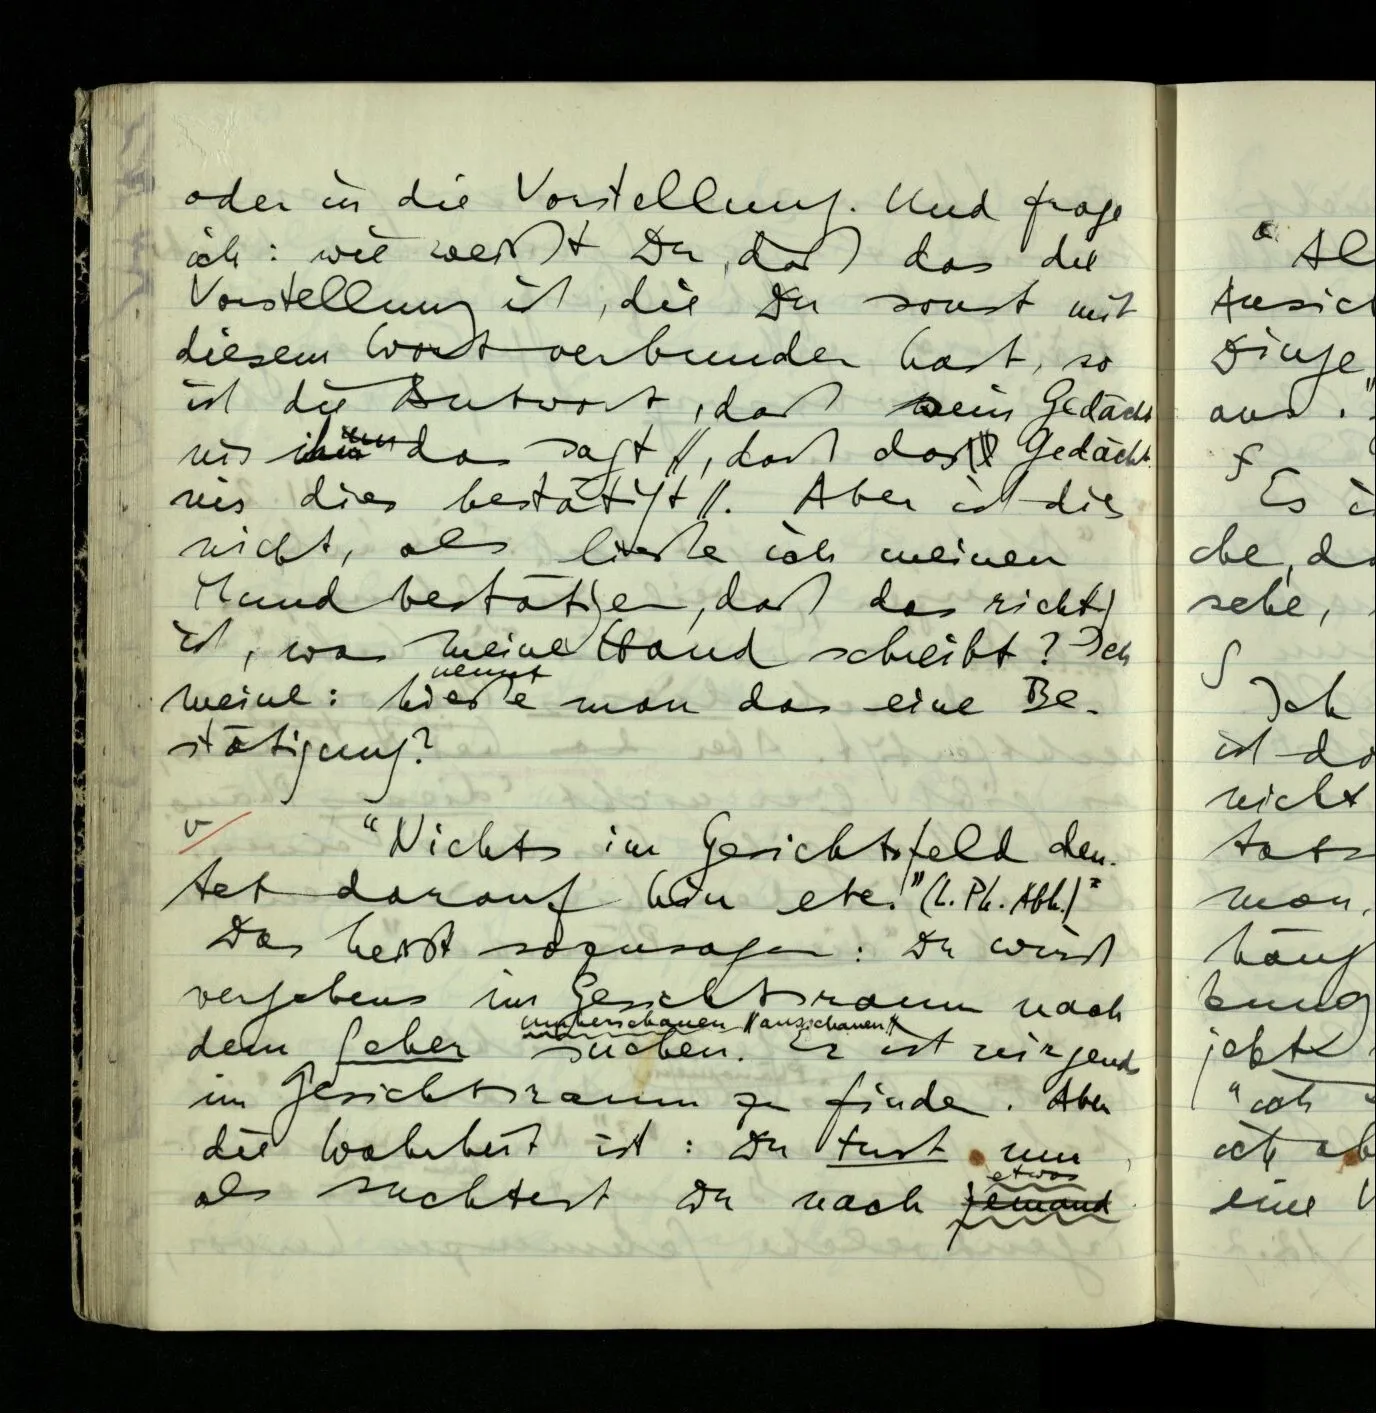 oder in die Vorstellung. Und frage
ich: wie weißt Du, daß das die
Vorstellung ist, die Du sonst mit
diesem Wort verbunden hast, so
ist die Antwort, daß sein Gedächt
nis ihm das sagt //, daß das Gedächt
nis dies bestätigt //. Aber ist dies
nicht, als ließe ich meinen
Mund bestätigen, daß das richtig
ist, was meine Hand schreibt? Ich
nennt
meine: hieße man das eine Be-
stätigung?
"Nichts im Gesichtsfeld deu-
tet darauf hin etc." (L. Ph. Abh.)"
Das heißt sozusagen: Du wirst
vergebens im Gesichtsraum nach
umherschauen // auszuschauen //
dem Seher suchen. Er ist nirgends
im Gesichtsraum zu finden. Aber
die Wahrheit ist: Du tust nur
etwas
als suchtest Du nach jemand
Al
Ansich
Dinge
aus."
Es i
che, da
sehe,
Ich
ist da
nicht
tats
man.
häng
kung
jekt
"ich
ich ab
eine V